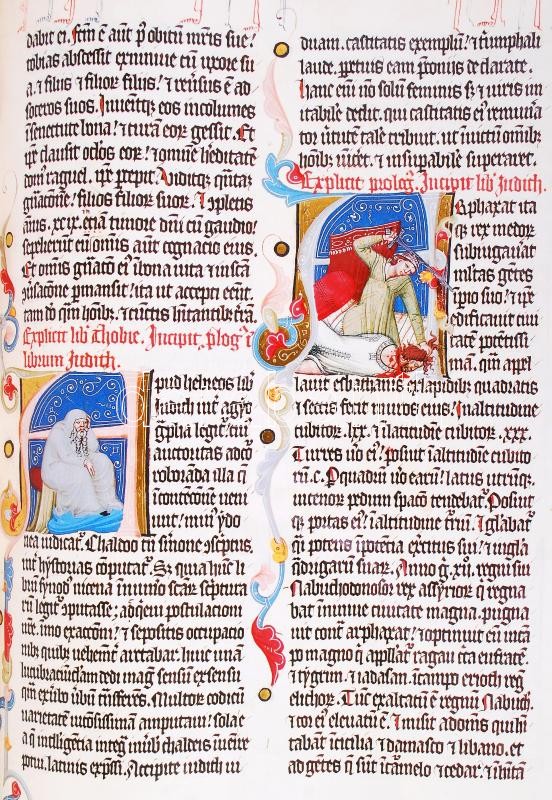 dabit ei. sem ē aut p̄ obitū mr̄is sue!
tobias abscessit ex niniue cū uxore su
a. & filiis & filior filiis! & reūsus ē ad
soceros suos. Inuenitq; eos incolumes
ī senectute bona! & curā eor gessit. Et
ip̄e clausit oclos eor! & omnē h̄editatē
dom raguel. ip̄e p̄cepit. Uiditq; quītā
gn̄acōnē! filios filior suor. Ipletis
annis. xc.ix. cū timore dn̄i cū gaudio!
sepelierūt eū omīs aūt cognacio eius.
Et omīs gn̄aco ei' ī bona uita & ī scā
ɔ̄uīsacōne pmansit! ita ut accepti eēnt.
tam do qm̄ hoib; & cūctis hītantib; ī t̄rā.
Explicit lib' thobie. Incipit plog' ī
librum Judith.
Apud hebreos lib'
iudith int' agyo
g̑pha legit'! cui'
auctoritas ad co
roborāda illa q̄
ī cōtencōnē ueni
unt! min' ydo
nea iudicat'. Chaldeo tn̄ smone ɔsc̄ptus,
int' hystorias cōputat'. Sz quia hūc li
brū synod' nicena ī nūo scar scptura
rū legit' ɔputasse! adq̄eui postulacioni
ur̄e. īmo exaccōni! & sepositis occupacio
nib; quib; uehemēt' artabar. huic unā
lucubraciūclam dedi mag' sensū e sensu
qm̄ ex ūbo ūbū tn̄sferēs. Multor codicū
uarietatē uiciosissimam amputaui! sola e
a q̄ intelligēcia integ̑ ī ūb chaldeis īuenire
potui. latinis exp̄ssi. Accipite iudith ui
duam. castitatis exemplū! & tiumphali
laude. p̄petuis eam p̄coniis declarate.
hanc eni nō solū feminis sz & uiris im
itabile dedit. qui castitatis ei' remūa
tor ūtutē tale tribuit. ut īuictū omīb;
hoib; uīcet. & insupabile superaret.
Explicit prolog'. Incipit lib' Judith.
Arphaxat ita
q; rex medor
subiugauit
mltas gētes
īpio suo! & ip̄e
edificauit ciui
tatē potētissi
mā. qm̄ apel
lauit ecbathanis ex lapidib; quadratis
& sectis fecit muros eius! ī altitudine
cubitor. lxx. & ī latitudine cubitor. xxx.
Turres uo ei'! posuit ī altitudine cubito
rū. c. P quadrū uo earū! latus utrūq;
uicenor pedum spacō tendebat'. Posuit
q; portas ei'! ī altitudine t̄rriū. Iglabat'
q̄i potens ī potēcia exercitus sui! & ī uglā
q̄drigarū suar. Anno g̑. xii. regni sui
Nabuchodonosor rex assyrior q̄ regna
bat ī niniue ciuitate magna. pugna
uit cont̑ arphaxat! & optinuit eū ī cā
po magno q̄ appllat' ragau c̄ta eufratē.
& tygrim. & iadasan. ī campo erioth reg'
elichor. Tūc exaltatū ē regnū Nabuch.
& cor ei' eleuatū ē. & misit ad omīs qui hī
tabāt ī cicilia & damasco & libano. et
ad gētes q̄ sūt ī carmelo & cedar. & īhitā